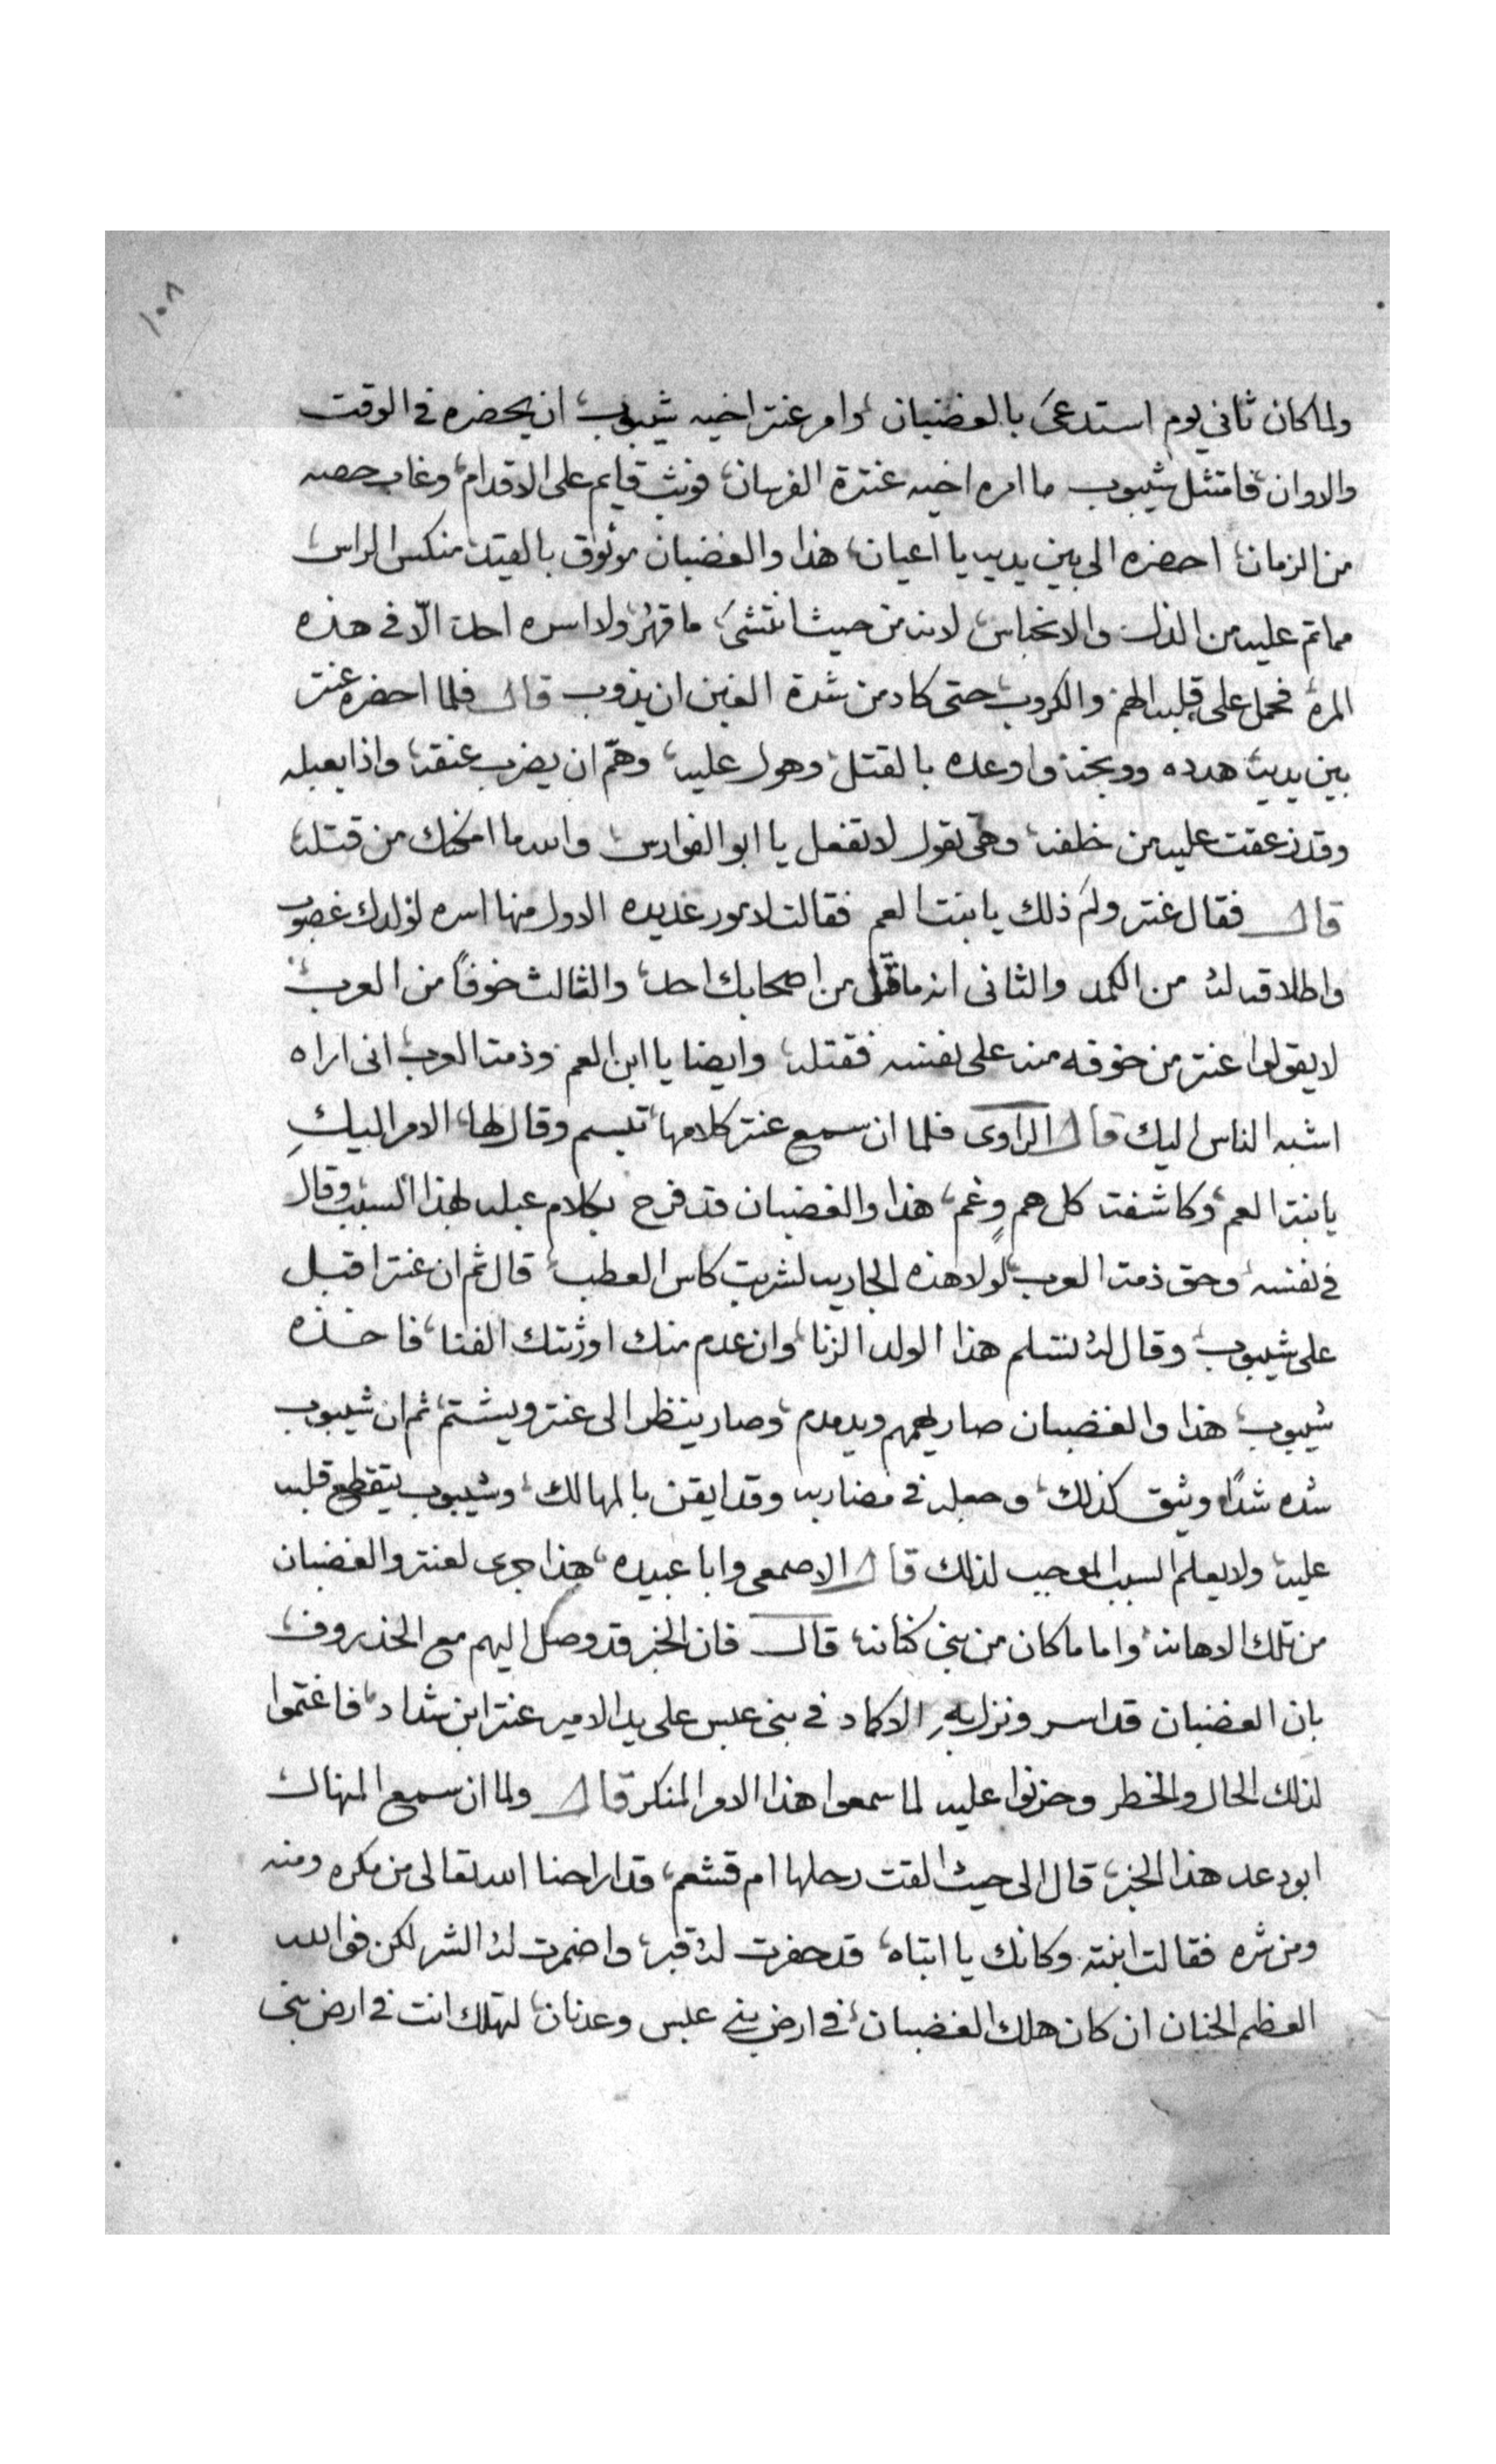 ١٠٨
ولما كان ثاني يوم استدعى بالغضبان، وامر عنتر اخيه شيبوب، ان يحضره في الوقت
والاوان، فامتثل شيبوب ما امره اخيه عنترة الفرسان، فوثب قايم على الاقدام، وغاب حصه
من الزمان، احضره الى بين يديه يا اعيان، هذا والغضبان موثوق بالقيد، منكس الراس،
مما تم عليه من الذل والانحباس، لانه من حيث انتشى، ما قهر، ولا اسره احد، الّا في هذه
المره، فحمل على قلبه الهم والكروب، حتى كاد من شدة الغبن ان يذوب قال فلما احضره عنتر
بين يديه، هدده ووبخه، واوعده بالقتل، وهول عليه، وهمّ ان يضرب عنقه، واذا بعبله
وقد زعقت عليه من خلفه، وهي تقول لا تفعل يا ابو الفوارس، والله ما امكنك من قتله،
قال فقال عنتر ولم ذلك يا بنت العم فقالت لامور عديده الاول منها اسره لولدك غصوب
واطلاقه له من الكمد والثاني انه ما قتل من اصحابك احد، والثالث خوفاً من العرب،
لا يقولوا عنتر من خوفه منه على نفسه فقتله، وايضا يا ابن العم وذمة العرب، اني اراه
اشبه الناس اليك قال الراوي فلما ان سمع عنتر كلامها، تبسم وقال لها، الامر اليكِ
يا بنت العم، وكاشفة كل هم وغم، هذا والغضبان قد فرح بكلام عبله لهذا السبب، وقال
في نفسه، وحق ذمة العرب، لولا هذه الجاريه لشربت كاس العطب، قال ثم ان عنتر اقبل
على شيبوب، وقال له، تسلم هذا الولد الزنا، وان عدم منك اورثتك الفنا، فاخذه
شيبوب، هذا والغضبان صار يهمهم ويدمدم، وصار ينظر الى عنتر ويشتم، ثم ان شيبوب
شده شدًا وثيق كذلك، وجعله في مضاربه وقد ايقن بالمهالك، وشيبوب يتقطع قلبه
عليه، ولا يعلم السبب الموجب لذلك قال الاصمعي وابا عبيده، هذا جرى لعنتر والغضبان
من تلك الاهانه، واما ما كان من بني كنانه، قال فان الخبر قد وصل اليهم مع الخذروف،
بان الغضبان قد اسر ونزل به الاكماد في بني عبس على يد الامير عنتر ابن شداد، فاغتموا
لذلك الحال والخطر وحزنوا عليه لما سمعوا هذا الامر المنكر قال ولما ان سمع المنهال،
ابو دعد هذا الخبر، قال الى حيث القت رحلها ام قشعم، قد اراحنا الله تعالى من مكره ومنه
ومن شره فقالت ابنته وكانك يا ابتاه، قد حفرت له قبر، واضمرت له الشر لكن فوالله
العظم الحنان ان كان هلك الغضبان، في ارض بني عبس وعدنان، لتهلك انت في ارض بني